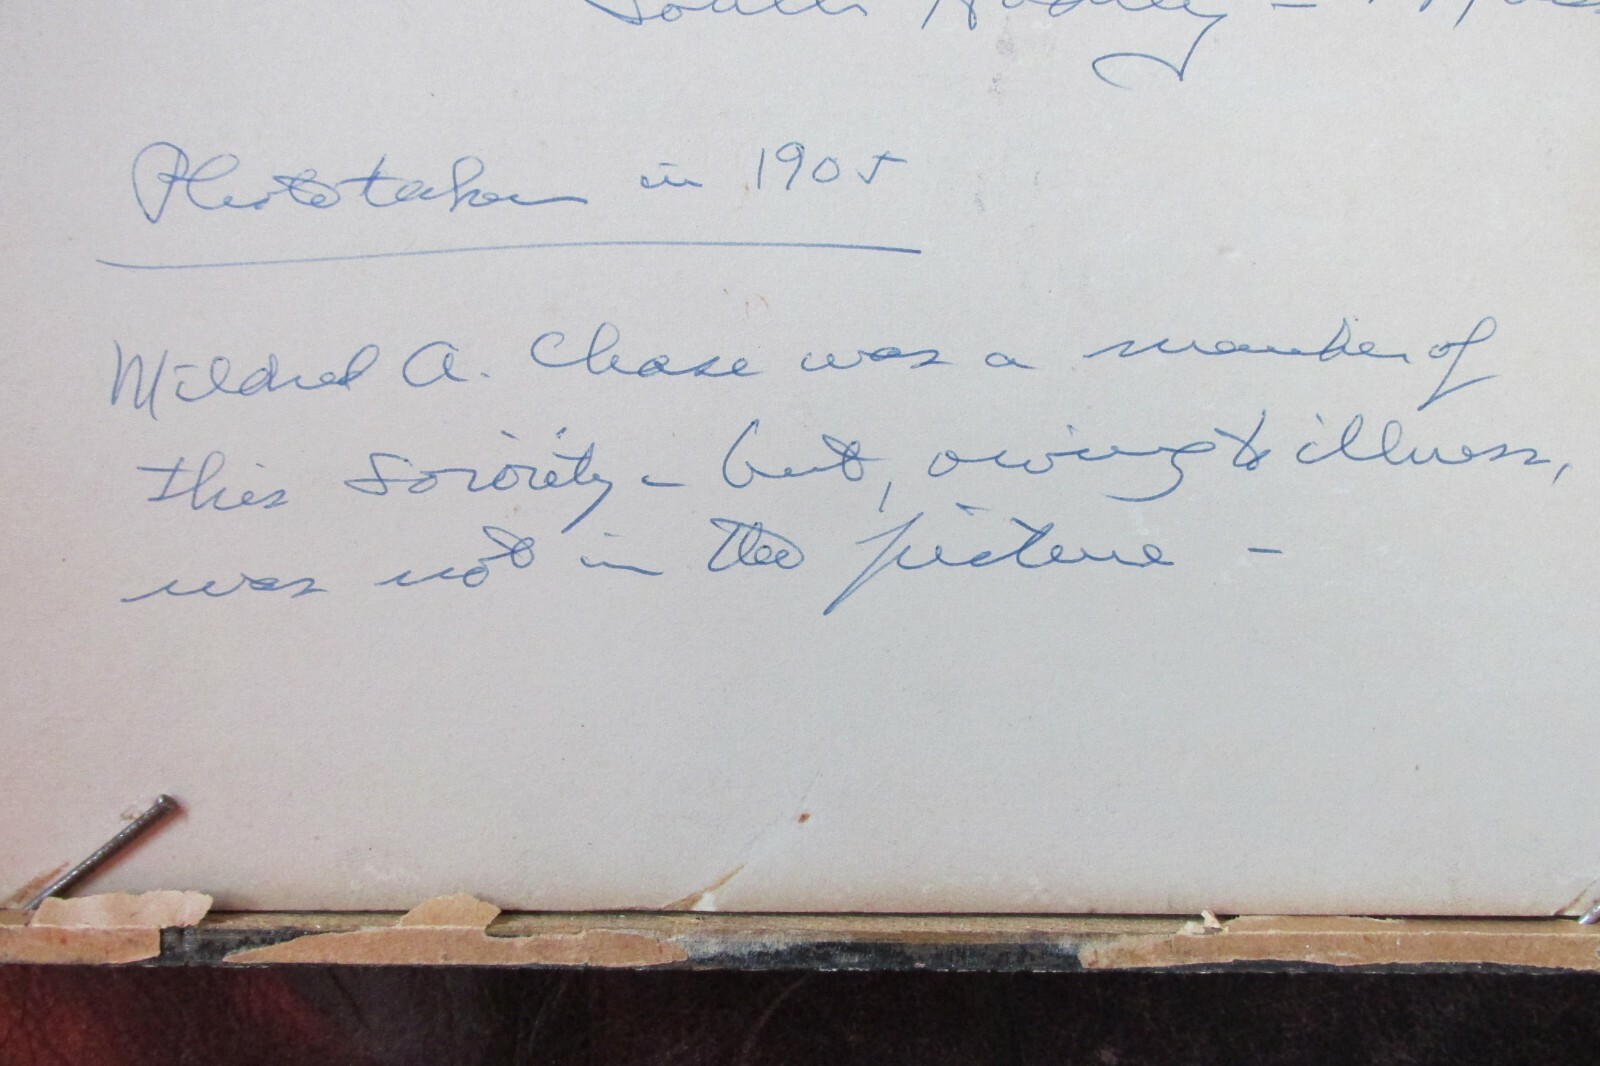 South Hadley - Mass
Photo taken in 1905
Mildred A. Chase was a member of
this Soriority - but, owing to illness,
was not in the picture -